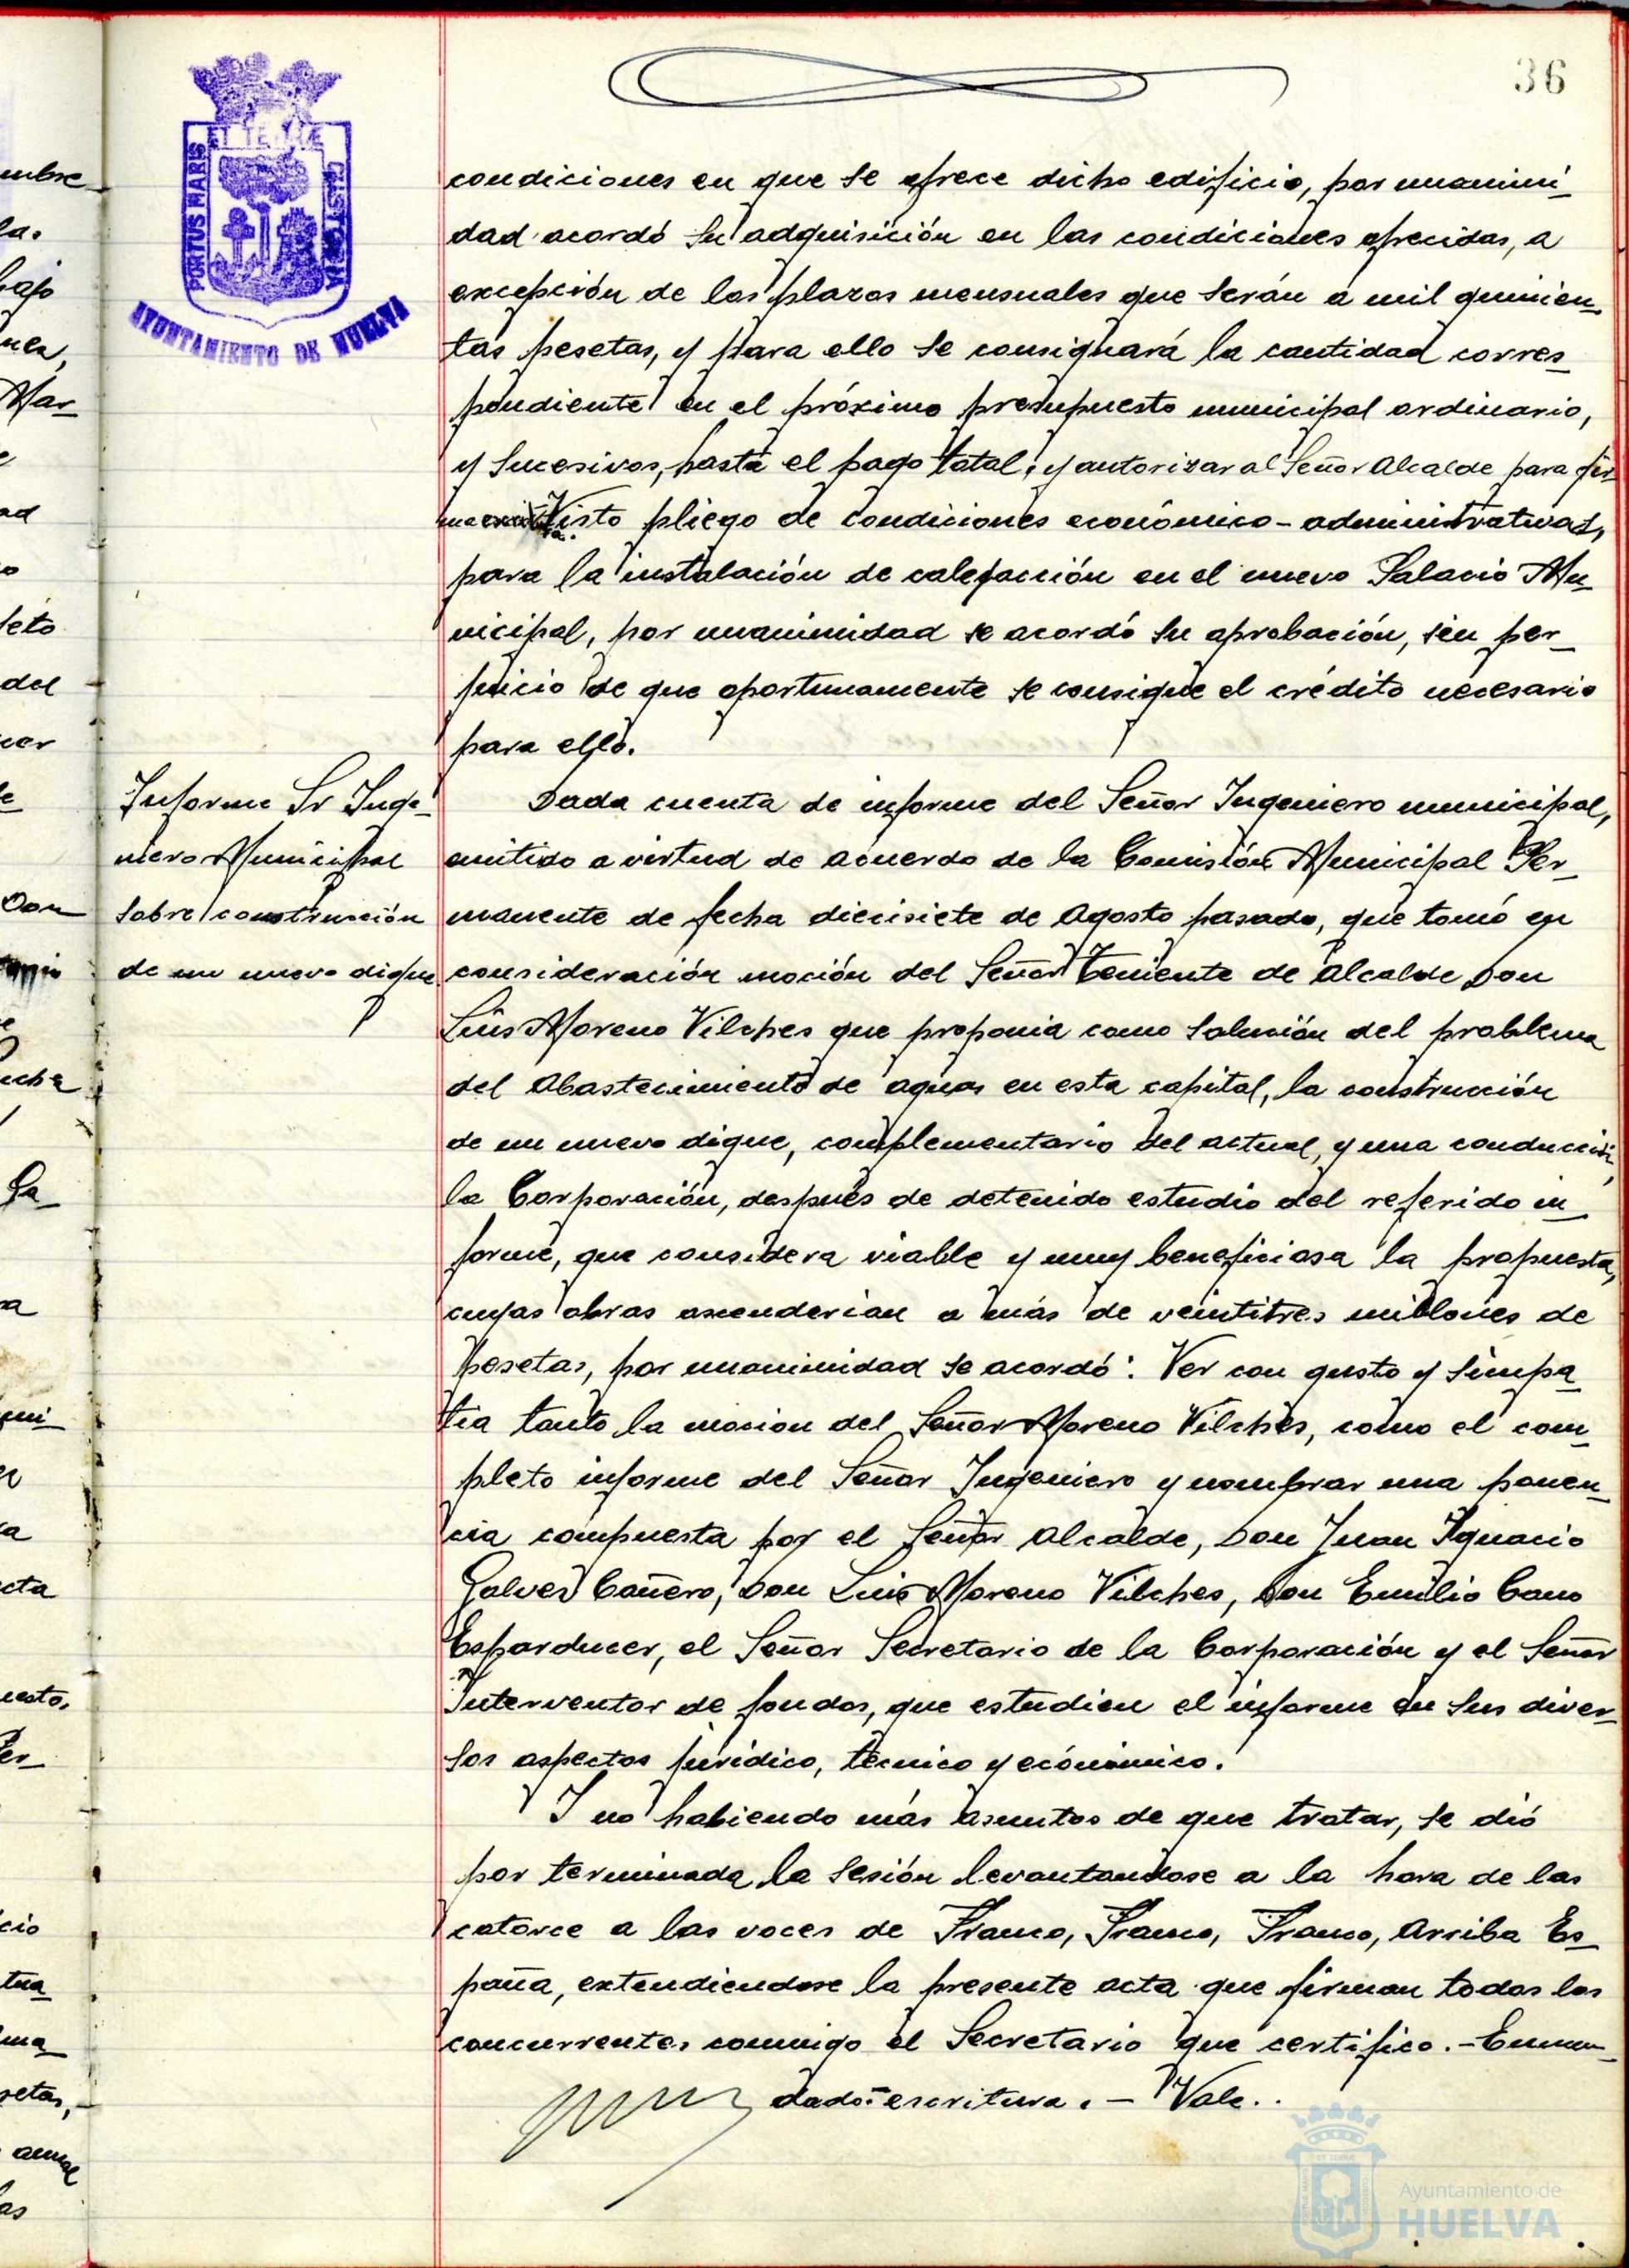 36
PORTUS MARIS
ET TERRÆ
CUSTODIA
AYUNTAMIENTO DE HUELVA
condiciones en que se ofrece dicho edificio, por unanimi_
dad acordó su adquisición en las condiciones ofrecidas, a
excepción de los plazos mensuales que serán a mil quinien_
tas pesetas, y para ello se consignará la cantidad corres_
pondiente en el próximo presupuesto municipal ordinario,
y sucesivos, hasta el pago total; y autorizar al Señor Alcalde para fir_
Visto pliego de condiciones económico-administrativas,
para la instalación de calefacción en el nuevo Palacio Mu_
nicipal, por unanimidad se acordó su aprobación, sin per_
juicio de que oportunamente se consigne el crédito necesario
para ello.
Informe Sr Inge_
niero Municipal
sobre construcción
de un nuevo dique
Dada cuenta de informe del Señor Ingeniero municipal,
emitido a virtud de acuerdo de la Comisión Municipal Per_
manente de fecha diecisiete de Agosto pasado, que tomó en
consideración moción del Señor Teniente de Alcalde Don
Luis Moreno Vilches que proponia como solución del problema
del Abastecimiento de aguas en esta capital, la construcción
de un nuevo dique, complementario del actual, y una conducción,
la Corporación, después de detenido estudio del referido in_
forme, que considera viable y muy beneficiosa la propuesta,
cuyas obras ascenderian a más de veintitres millones de
pesetas, por unanimidad se acordó: Ver con gusto y simpa_
tia tanto la mocion del Señor Moreno Vilches, como el com_
pleto informe del Señor Ingeniero y nombrar una ponen_
cia compuesta por el Señor Alcalde, Don Juan Ignacio
Galvez Cañero, Don Luis Moreno Vilches, Don Emilio Cano
Esparducer, el Señor Secretario de la Corporación y el Señor
Interventor de fondos, que estudien el informe en sus diver_
sos aspectos juridico, técnico y económico.
Y no habiendo más asuntos de que tratar, se dió
por terminada la sesión levantandose a la hora de las
catorce a las voces de Franco, Franco, Franco, Arriba Es_
paña, extendiendose la presente acta que firman todos los
concurrentes conmigo el Secretario que certifico.-Enmen_
dado: escritura.- Vale.
Ayuntamiento de
HUELVA